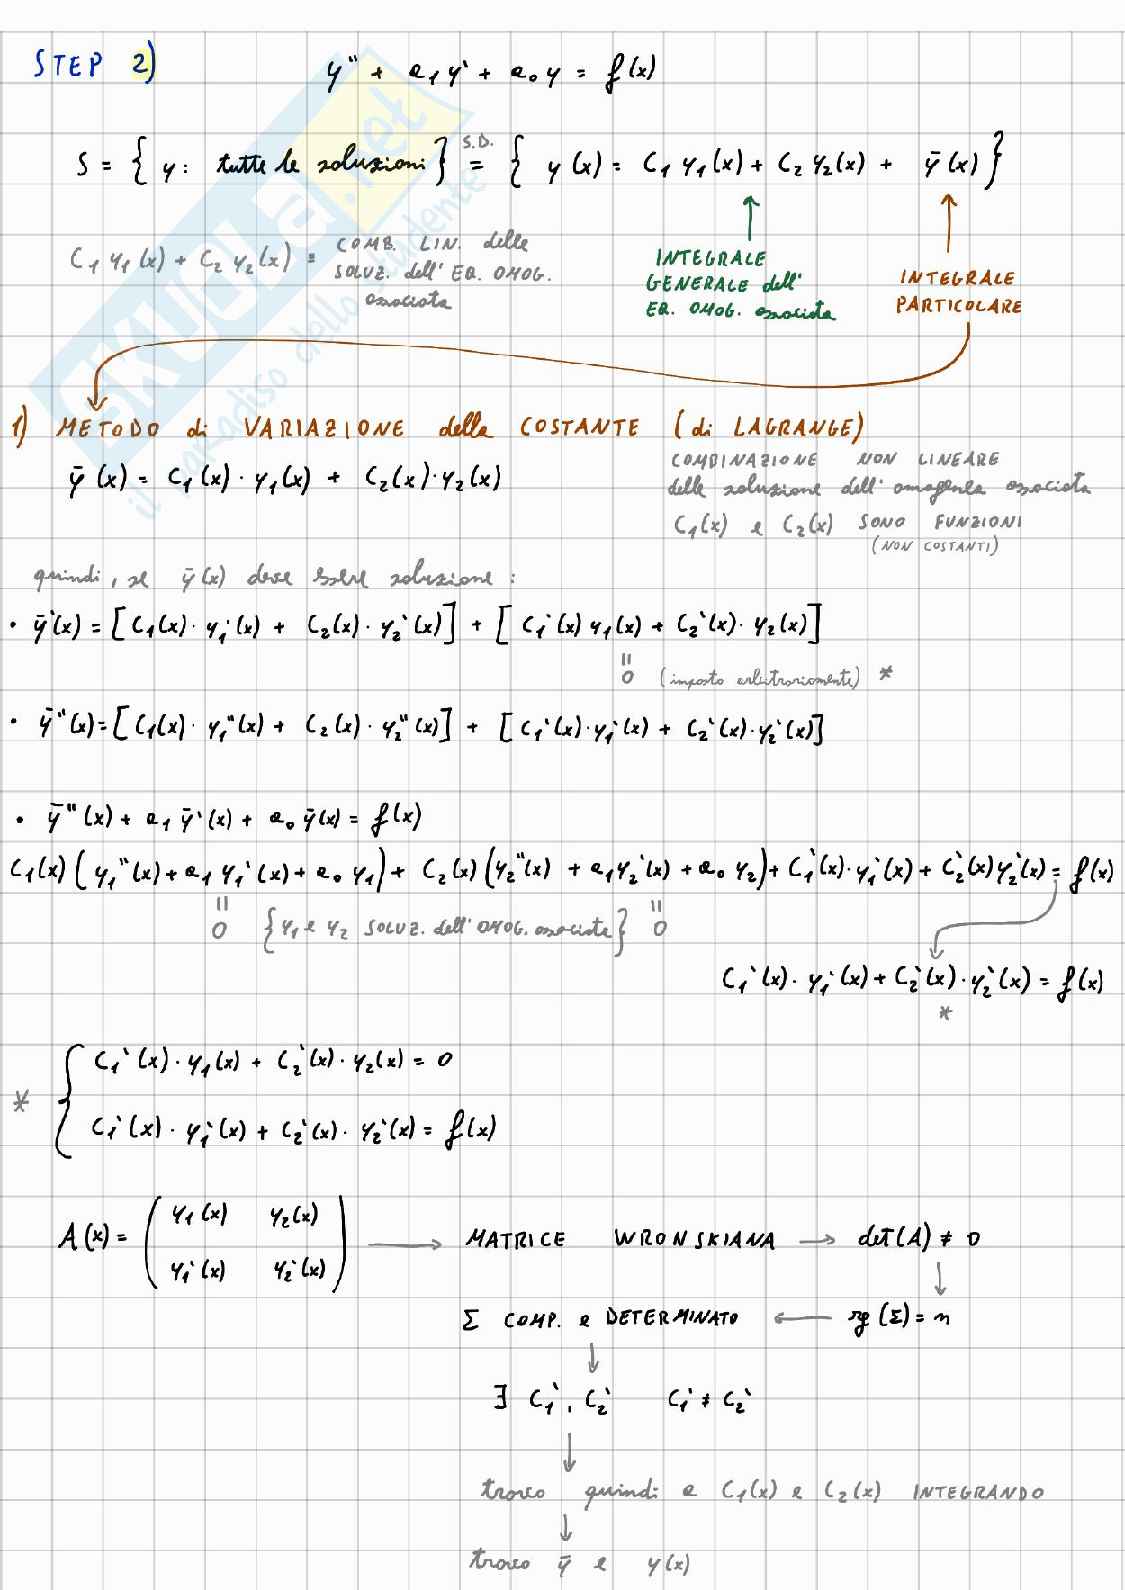 STEP 2)
y'' + a₁ y' + a₀ y = f(x)
S = { y : tutte le soluzioni } S.D. = { y(x) = C₁ y₁(x) + C₂ y₂(x) + ȳ(x) }
C₁ y₁(x) + C₂ y₂(x) = COMB. LIN. delle
SOLUZ. dell' EQ. OMOG.
associata
INTEGRALE
GENERALE dell'
EQ. OMOG. associata
INTEGRALE
PARTICOLARE
1) METODO di VARIAZIONE della COSTANTE (di LAGRANGE)
ȳ(x) = C₁(x) · y₁(x) + C₂(x) · y₂(x)
COMBINAZIONE NON LINEARE
delle soluzione dell' omogenea associata
C₁(x) e C₂(x) SONO FUNZIONI
(NON COSTANTI)
quindi, se ȳ(x) deve essere soluzione :
• ȳ'(x) = [C₁(x) · y₁'(x) + C₂(x) · y₂'(x)] + [C₁'(x) y₁(x) + C₂'(x) · y₂(x)]
= 0 (imposto arbitrariamente) *
• ȳ''(x) = [C₁(x) · y₁''(x) + C₂(x) · y₂''(x)] + [C₁'(x) · y₁'(x) + C₂'(x) · y₂'(x)]
• ȳ''(x) + a₁ ȳ'(x) + a₀ ȳ(x) = f(x)
C₁(x) (y₁''(x) + a₁ y₁'(x) + a₀ y₁) + C₂(x) (y₂''(x) + a₁ y₂'(x) + a₀ y₂) + C₁'(x) · y₁'(x) + C₂'(x) y₂'(x) = f(x)
= 0 {y₁ e y₂ SOLUZ. dell' OMOG. associata} = 0
C₁'(x) · y₁'(x) + C₂'(x) · y₂'(x) = f(x)
*
C₁'(x) · y₁(x) + C₂'(x) · y₂(x) = 0
*
C₁'(x) · y₁'(x) + C₂'(x) · y₂'(x) = f(x)
A(x) = ( y₁(x) y₂(x)
y₁'(x) y₂'(x) ) → MATRICE WRONSKIANA → det(A) ≠ 0
↓
Σ COMP. e DETERMINATO ← rg(Σ) = n
↓
∃ C₁', C₂' C₁' ≠ C₂'
↓
trovo quindi e C₁(x) e C₂(x) INTEGRANDO
↓
trovo ȳ e y(x)
SKUOLA.net
il paradiso dello studente